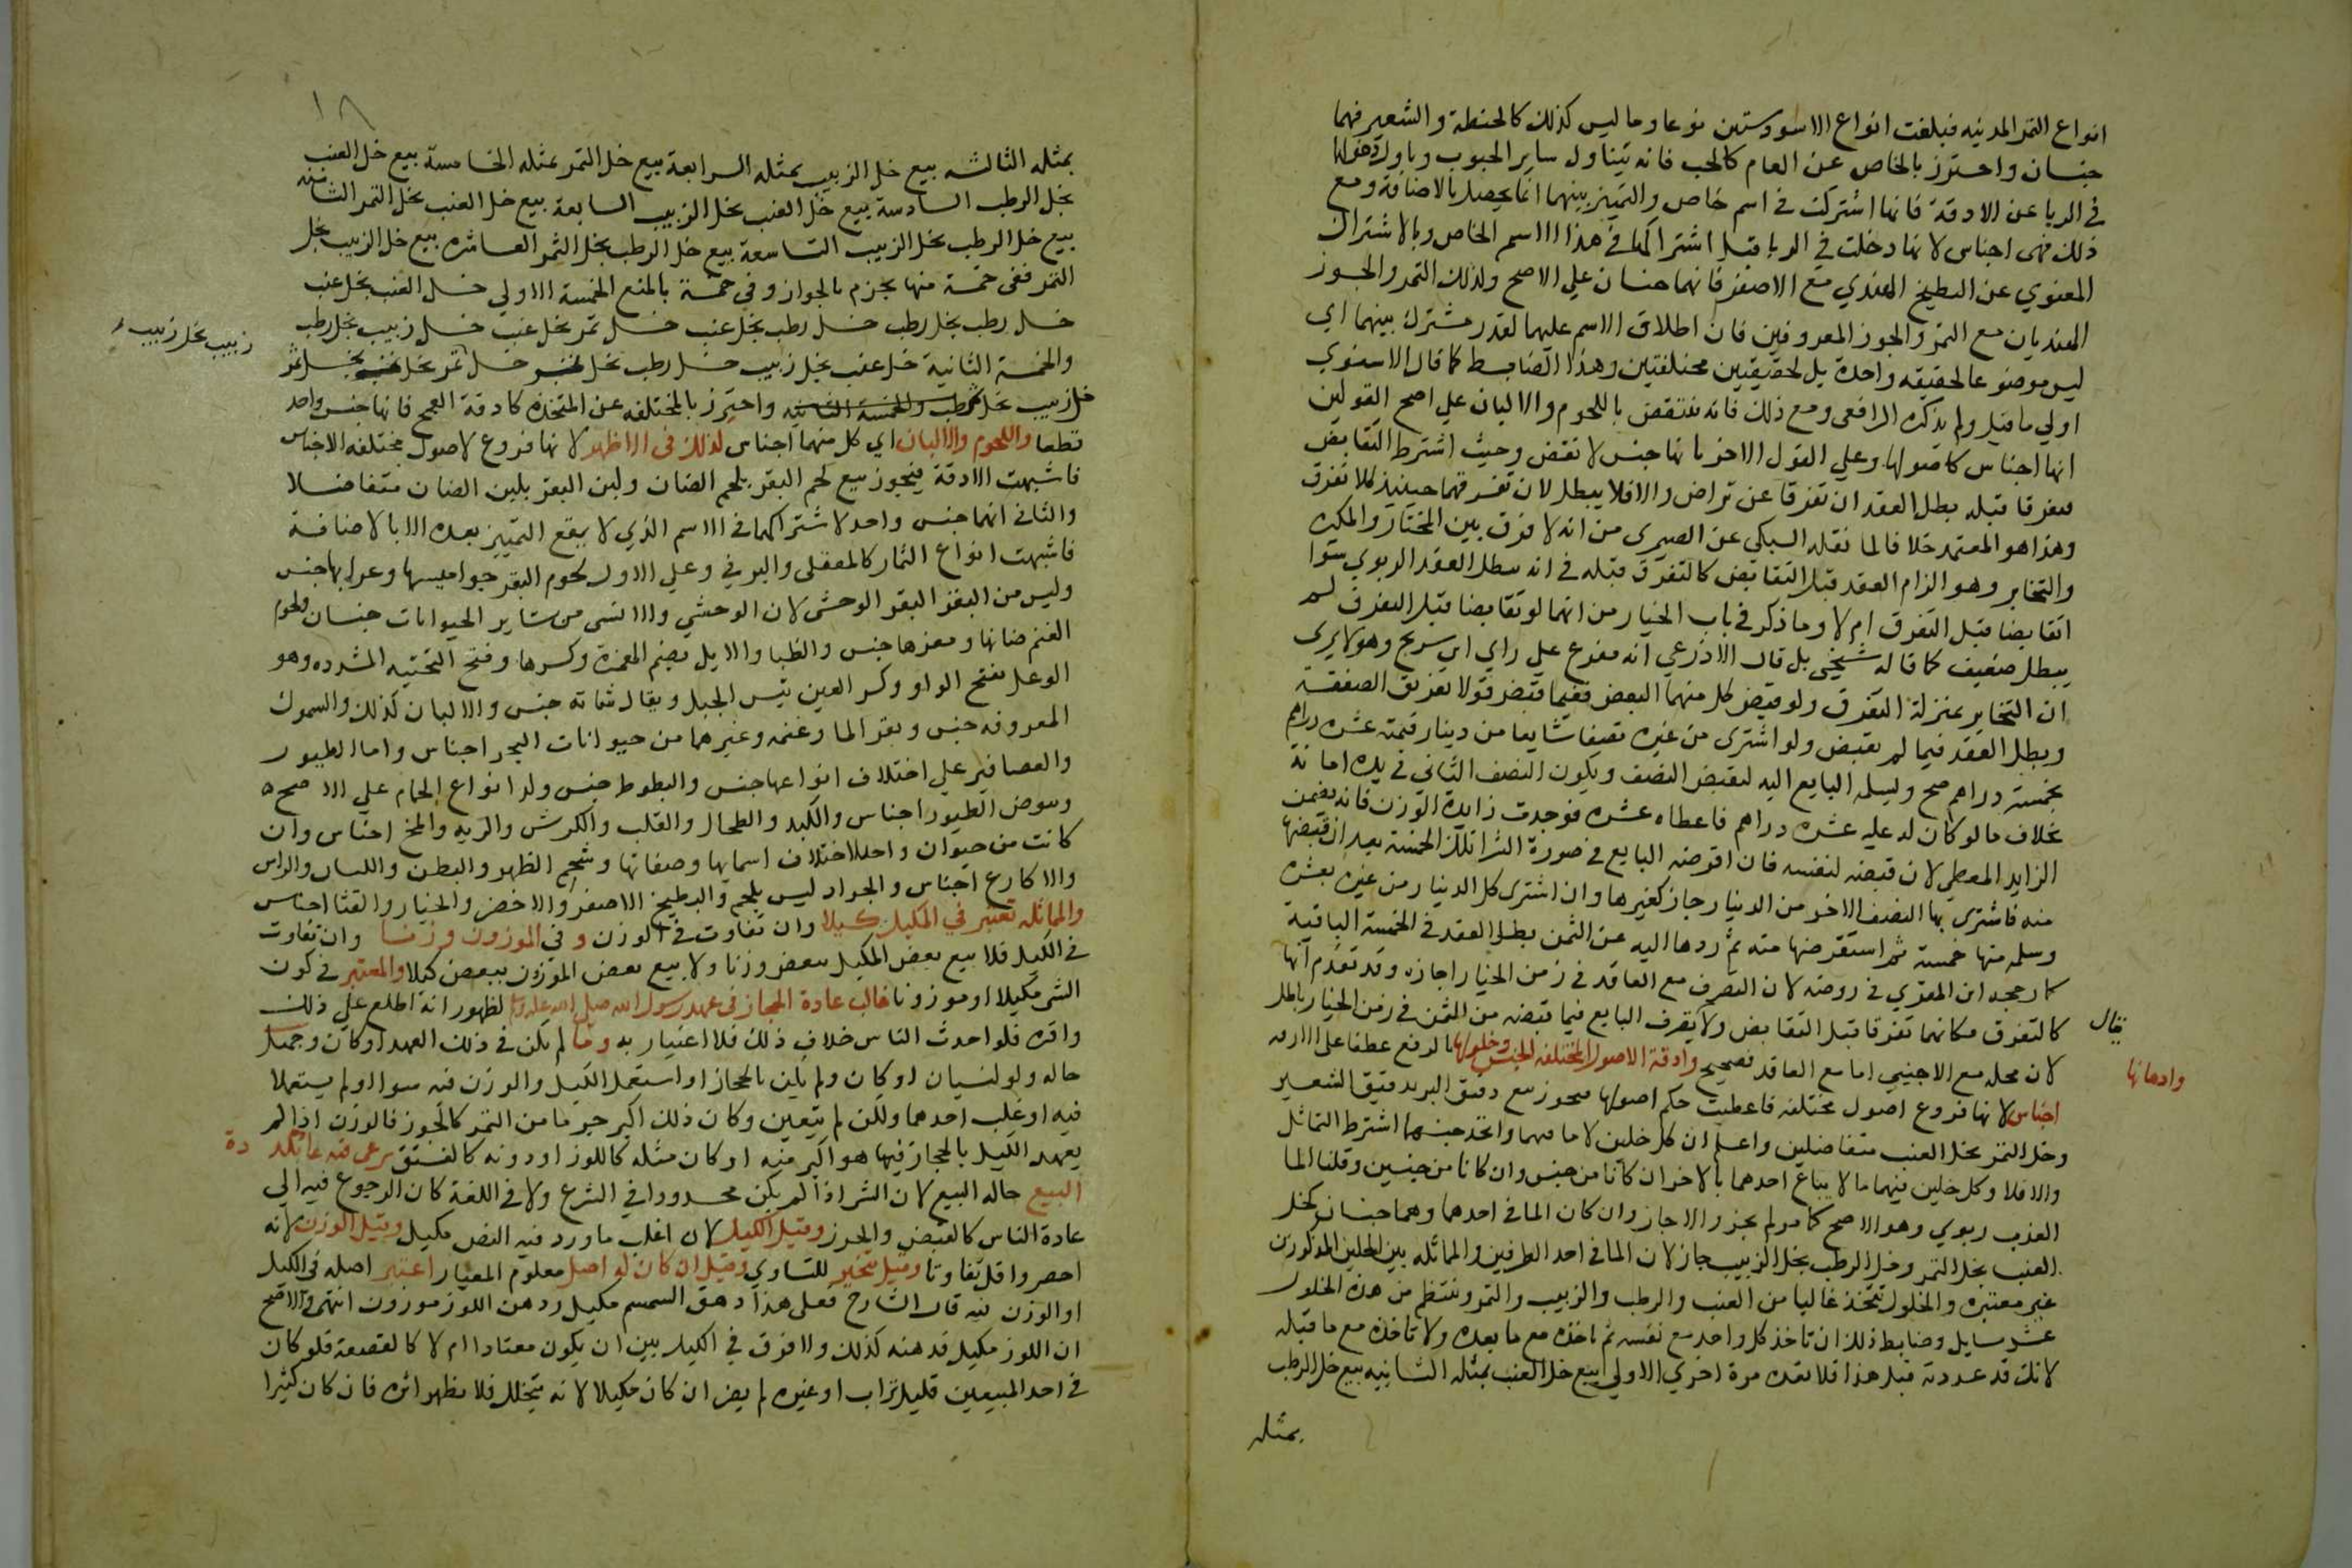 انواع التمر المدنيه فبلغت انواع الاسود ستين نوعا وما ليس كذلك كالحنطة والشعير فهما
جنسان واحترز بالخاص عن العام كالحب فانه يتناول ساير الحبوب وباول دخولها
في الربا عن الادقة فانها اشتركت في اسم خاص والتميز بينهما انما يحصل بالاضافة ومع
ذلك فهى اجناس لانها دخلت في الربا قبل اشتراكها في هذا الاسم الخاص وبالاشتراك
المعنوي عن البطيخ الهندي مع الاصفر فانهما جنسان علي الاصح وكذلك التمر والجوز
الهنديان مع التمر والجوز المعروفين فان اطلاق الاسم عليهما لقدر مشترك بينهما اي
ليس موضوعا لحقيقه واحدة بل لحقيقتين مختلفتين وهذا الضابط كما قال الاسنوي
اولي ما قيل ولم يذكره الرافعى ومع ذلك فانه منتقض باللحوم والالبان علي اصح القولين
انها اجناس كاصولها وعلي القول الاخر بانها جنس لا نقض وحيث اشترط التقابض
فتفرقا قبله بطل العقد ان تفرقا عن تراض والا فلا يبطل لان تفرقهما حينيذ كلا تفرق
وهذا هو المعتمد خلافا لما نقله السبكى عن الصيمرى من انه لا فرق بين المختار والمكره
والتخاير وهو الزام العقد قبل التقابض كالتفرق قبله في انه يبطل العقد الربوي سوا
اتقابضا قبل التفرق ام لا وما ذكر في باب الخيار من انهما لو تقابضا قبل التفرق لم
يبطل ضعيف كما قاله شيخي بل قال الاذرعي انه مفرع علي راي ابن سريج وهو لا يرى
ان التخاير بمنزلة التفرق ولو قبض كل منهما البعض ففيما قبض قولا تفريق الصفقة
وبطل العقد فيما لم يقبض ولو اشترى من غيره نصفا شايعا من دينار قيمته عشرة دراهم
بخمسة دراهم صح ويسلمه البايع اليه ليقبض النصف ويكون النصف الثاني في يده امانة
بخلاف ما لو كان له عليه عشرة دراهم فاعطاه عشره فوجدت زايدة الوزن فانه يضمن
الزايد المعطي لانه قبضه لنفسه فان اقرضه البايع في صورة الشرا تلك الخمسة بعد ان قبضها
منه فاشترى بها النصف الاخر من الدينار جاز كغيرها وان اشترى كل الدينار من غيره بعشرة
وسلمه منها خمسة ثم استقرضها منه ثم ردها اليه عن الثمن بطل العقد في الخمسة الباقية
كما رجحه ابن المقري في روضه لان التصرف مع العاقد في زمن الخيار اجازه وقد تقدم انها
كالتفرق فكانهما تفرقا قبل التقابض ولا يقال تصرف البايع فيما قبضه من الثمن في زمن الخيار باطل
لان محله مع الاجنبي اما مع العاقد فصحيح وادقة الاصول المختلفة الجنس وخلولها وادهانها بالرفع عطفا على ادقة
اجناس لانها فروع اصول مختلفه فاعطيت حكم اصولها فيجوز بيع دقيق البر بدقيق الشعير
وخل التمر بخل العنب متفاضلين واعلم ان كل خلين لا ما فيهما واتحد جنسهما اشترط التماثل
والا فلا وكل خلين فيهما ما لا يباع احدهما بالاخر ان كانا من جنس وان كانا من جنسين وقلنا الما
العذب ربوي وهو الاصح كما مر لم يجز والا جاز وان كان الما في احدهما وهما جنسان كخل
العنب بخل التمر وخل الرطب بخل الزبيب جاز لان الما في احد الطرفين والمماثله بين الخلين المذكورين
غير معتبره والخلول تتخذ غالبا من العنب والرطب والزبيب والتمر وينتظم من هذه الخلول
عشر سايل وضابط ذلك ان تاخذ كل واحد مع نفسه ثم تاخذه مع ما بعده ولا تاخذه مع ما قبله
لانك قد عددته قبل هذا فلا تعده مرة اخري الاولي بيع خل العنب بمثله الثانيه بيع خل الرطب
بمثله
١٨
بمثله الثالثه بيع خل الزبيب بمثله الرابعة بيع خل التمر بمثله الخامسة بيع خل العنب
بخل الرطب السادسة بيع خل العنب بخل الزبيب السابعة بيع خل العنب بخل التمر الثامنه
بيع خل الرطب بخل الزبيب التاسعة بيع خل الرطب بخل التمر العاشره بيع خل الزبيب بخل
التمر ففي خمسة منها يجزم بالجواز وفي خمسة بالمنع الخمسة الاولي خل العنب بخل عنب
خل رطب بخل رطب خل رطب بخل عنب خل تمر بخل عنب خل زبيب بخل رطب
زبيب بخل زبيب
والخمسة الثانية خل عنب بخل زبيب خل رطب بخل خل تمر بخل بخل تمر
خل زبيب بخل رطب والخمسة الثانيه واحترز بالمختلفه عن المتحده كادقة القمح فانها جنس واحد
قطعا واللحوم والالبان اي كل منهما اجناس كذلك في الاظهر لانها فروع لاصول مختلفه الاجناس
فاشبهت الادقة فيجوز بيع لحم البقر بلحم الضان ولبن البقر بلبن الضان متفاضلا
والثاني انهما جنس واحد لاشتراكهما في الاسم الذي لا يقع التمييز بعده الا بالاضافة
فاشبهت انواع الثمار كالمعقلى والبرني وعلي الاول لحوم البقر جواميسها وعرابها جنس
وليس من البقر البقر الوحشى لان الوحشي والانسى من ساير الحيوانات جنسان ولحوم
الغنم ضانها ومعزها جنس والظبا والايل بضم الهمزة وكسرها وفتح التحتيه المشدده وهو
الوعل بفتح الواو وكسر العين تيس الجبل ويقال شاته جنس والالبان كذلك والسموك
المعروفه جنس وبقر الما وغنمه وغيرهما من حيوانات البحر اجناس واما الطيور
والعصافير علي اختلاف انواعها جنس والبطوط جنس وكذا انواع الحمام علي الاصح
وبيوض الطيور اجناس والكبد والطحال والقلب والكرش والريه والمخ اجناس وان
كانت من حيوان واحد لاختلاف اسمايها وصفاتها وشحم الظهر والبطن واللسان والراس
والاكارع اجناس والجراد ليس بلحم والبطيخ الاصفر والاخضر والخيار والقثا اجناس
والمماثله تعتبر في المكيل كيلا وان تفاوت في الوزن و في الموزون وزنا وان تفاوت
في الكيل فلا يبيع بعض المكيل ببعض وزنا ولا بيع بعض الموزون ببعض كيلا والمعتبر في كون
الشي مكيلا او موزونا غالب عادة الحجاز في عهد رسول الله صلى الله عليه وسلم لظهور انه اطلع علي ذلك
واقره فلو احدث الناس خلاف ذلك فلا اعتبار به وما لم يكن في ذلك العهد او كان وجهل
حاله ولو لنسيان او كان ولم يكن بالحجاز او استعمل الكيل والوزن فيه سوا او لم يستعملا
فيه او غلب احدهما ولكن لم يتعين وكان ذلك اكبر جرما من التمر كالجوز فالوزن اذ لم
يعهد الكيل بالحجاز فيما هو اكبر منه او كان مثله كاللوز او دونه كالفستق يرعى فيه عادة بلد
البيع حاله البيع لان الشي اذا لم يكن محدودا في الشرع ولا في اللغة كان الرجوع فيه الي
عادة الناس كالقبض والحرز وقيل الكيل لان اغلب ما ورد فيه النص مكيل وقيل الوزن لانه
احصر واقل تفاوتا وقيل يتخير للتساوي وقيل ان كان له اصل معلوم المعيار اعتبر اصله في الكيل
او الوزن فيه قال الشارح فعلى هذا دهن السمسم مكيل ودهن اللوز موزون انتهى والاصح
ان اللوز مكيل فدهنه كذلك ولا فرق في الكيل بين ان يكون معتادا ام لا كالقصعة فلو كان
في احد المبيعين قليل تراب او غيره لم يضر ان كان مكيلا لانه يتخلل فلا يظهر اثره فان كان كثيرا